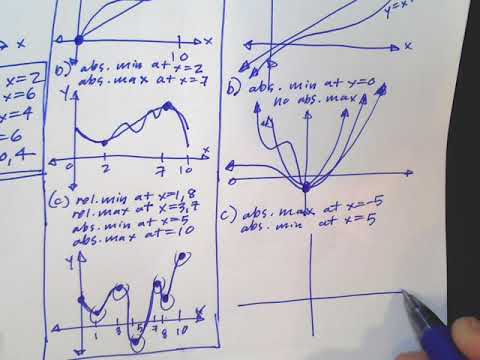 x=2
x=6
x=4
=6
0,4
x
10
b) abs. min at x=2
abs. max at x=7
y
0
2
7
10
x
(c) rel. min at x=1,8
rel. max at x=3,7
abs. min at x=5
abs. max at=10
y
1
3
5
7
8
10
x
y=x
x
b) abs min at x=0
no abs. max
c) abs. max at x=-5
abs. min at x=5